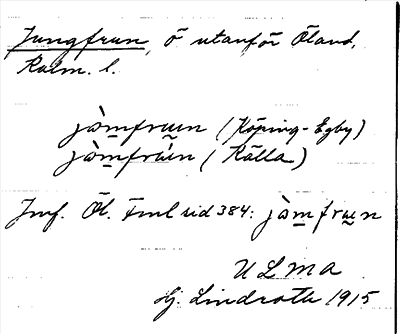 Jungfrun, ö utanför Öland,
Kalm. l.
jàmfruen (Köping-Egby)
jàmfrúen (Källa)
Jmf. Öl. Fml sid 384: jàmfruen
ULMA
Hj. Lindroth 1915